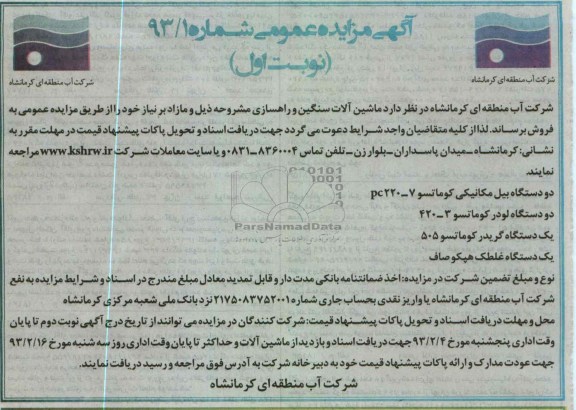 آگهی مزایده عمومی شماره ۹۳/۱
(نوبت اول)
شرکت آب منطقه ای کرمانشاه
شرکت آب منطقه ای کرمانشاه
شرکت آب منطقه ای کرمانشاه در نظر دارد ماشین آلات سنگین و راهسازی مشروحه ذیل و مازاد بر نیاز خود را از طریق مزایده عمومی به
فروش برساند. لذا از کلیه متقاضیان واجد شرایط دعوت می گردد جهت دریافت اسناد و تحویل پاکات پیشنهاد قیمت در مهلت مقرر به
نشانی: کرمانشاه_میدان پاسداران_بلوار زن_تلفن تماس ۸۳۶۰۰۰۴_۰۸۳۱ و یا سایت معاملات شرکت www.kshrw.ir مراجعه
نمایند.
دو دستگاه بیل مکانیکی کوماتسو ۷_pc۲۲۰
دو دستگاه لودر کوماتسو ۳_۴۲۰
یک دستگاه گریدر کوماتسو ۵۰۵
یک دستگاه غلطک هپکو صاف
ParsNamadData
نوع و مبلغ تضمین شرکت در مزایده: اخذ ضمانتنامه بانکی مدت دار و قابل تمدید معادل مبلغ مندرج در اسناد و شرایط مزایده به نفع
شرکت آب منطقه ای کرمانشاه یا واریز نقدی بحساب جاری شماره ۲۱۷۵۰۸۳۷۵۲۰۰۱ نزد بانک ملی شعبه مرکزی کرمانشاه
محل و مهلت دریافت اسناد و تحویل پاکات پیشنهاد قیمت: شرکت کنندگان در مزایده می توانند از تاریخ درج آگهی نوبت دوم تا پایان
وقت اداری پنجشنبه مورخ ۹۳/۲/۴ جهت دریافت اسناد و بازدید از ماشین آلات و حداکثر تا پایان وقت اداری روز سه شنبه مورخ ۹۳/۲/۱۶
جهت عودت مدارک و ارائه پاکات پیشنهاد قیمت خود به دبیرخانه شرکت به آدرس فوق مراجعه و رسید دریافت نمایند.
شرکت آب منطقه ای کرمانشاه